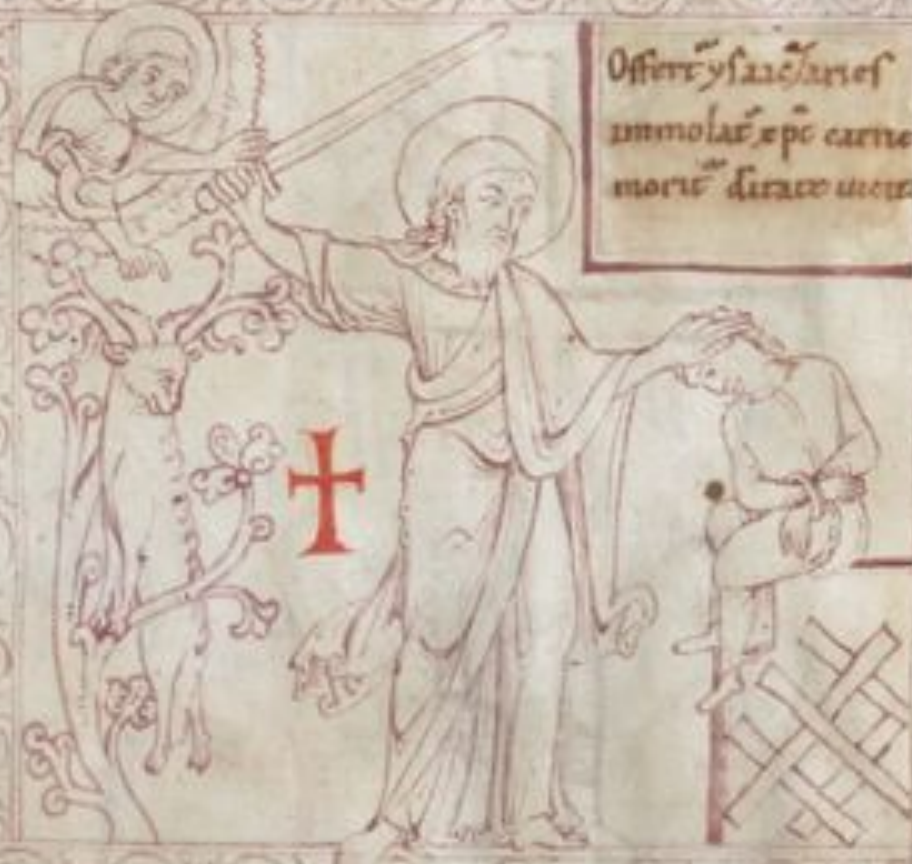 Offert᷑ ysaac / aries
immolat᷑ xp̄c carne
morit᷑ deitate